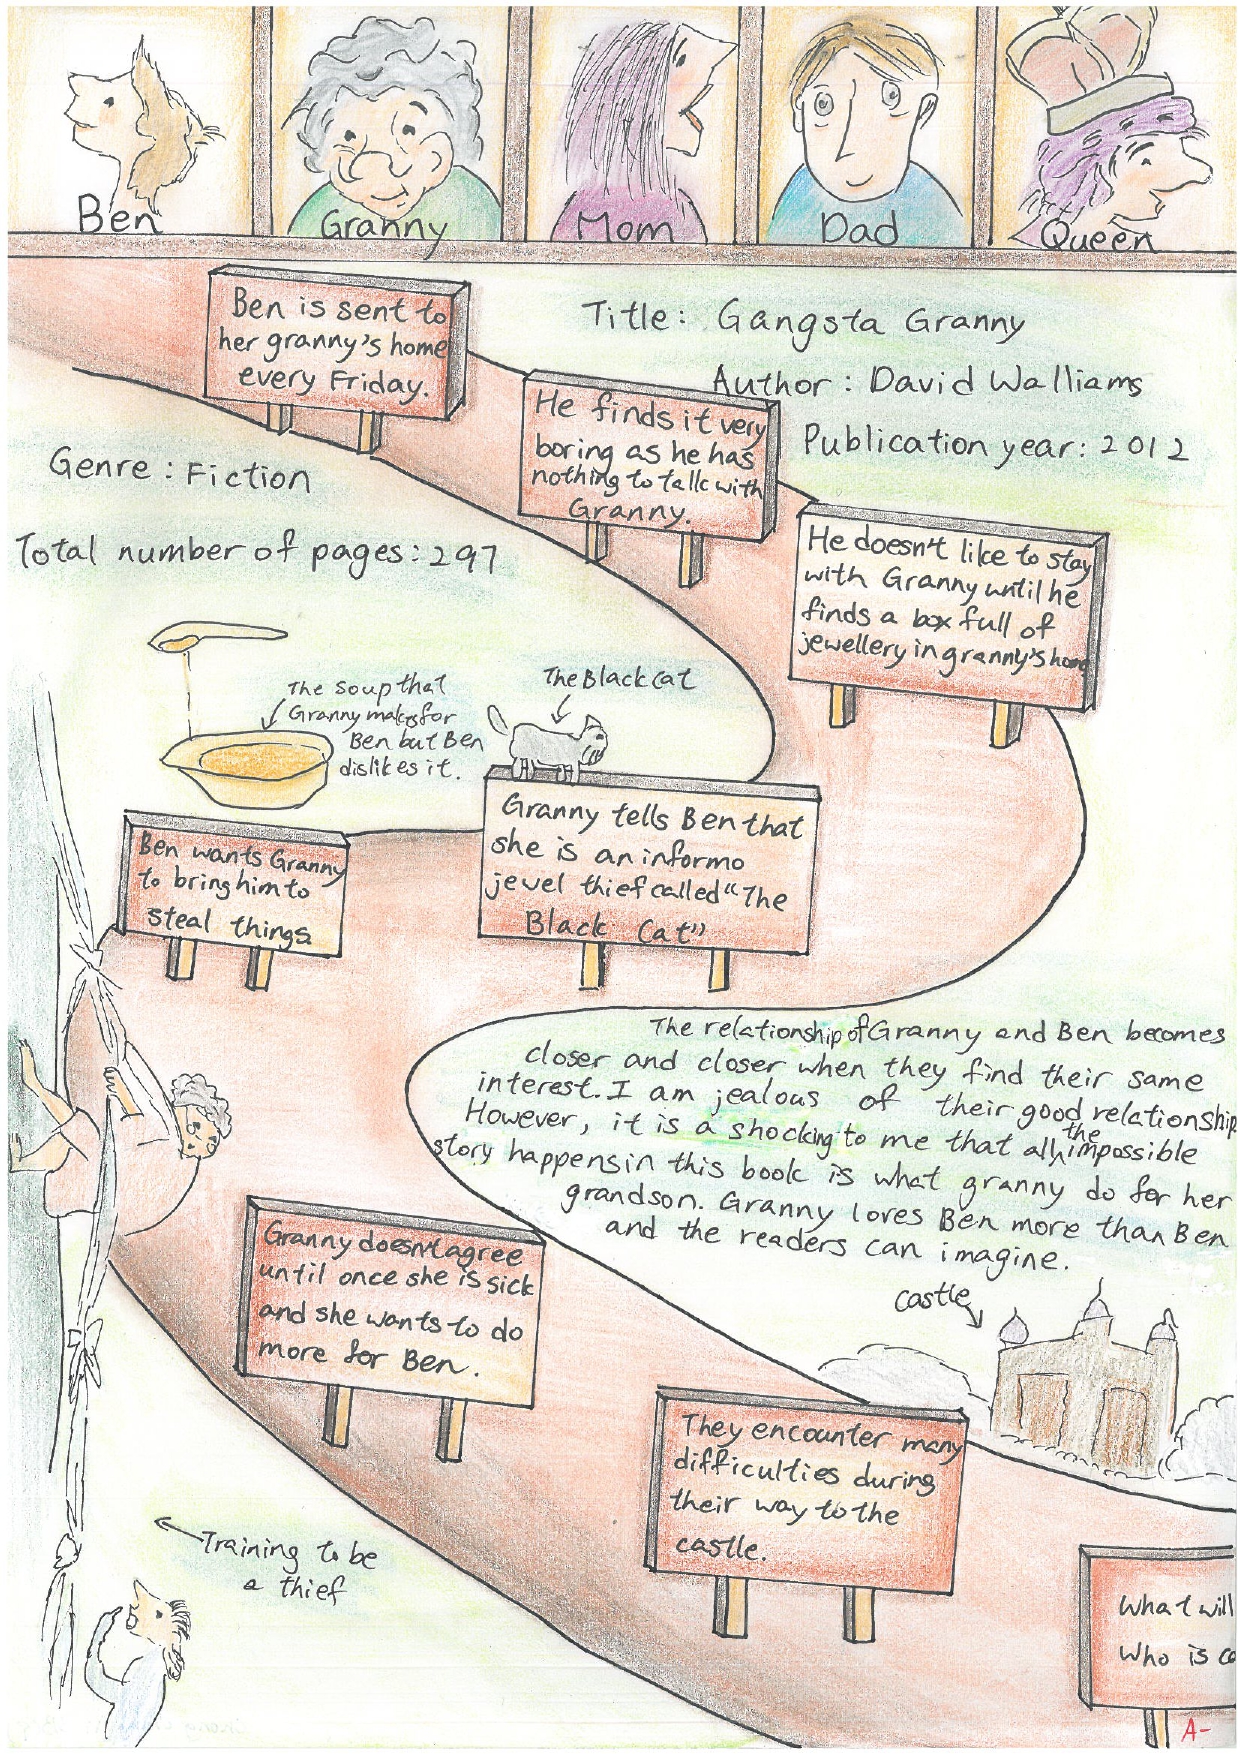 Ben
Granny
Mom
Dad
Queen
Ben is sent to
her granny's home
every Friday.
Title: Gangsta Granny
Author: David Walliams
Publication year: 2012
Genre: Fiction
Total number of pages: 297
He finds it very
boring as he has
nothing to talk with
Granny.
He doesn't like to stay
with Granny until he
finds a box full of
jewellery in granny's home
The soup that
Granny makes for
Ben but Ben
dislikes it.
The Black Cat
Granny tells Ben that
she is an informo
jewel thief called "The
Black Cat"
Ben wants Granny
to bring him to
steal things.
The relationship of Granny and Ben becomes
closer and closer when they find their same
interest. I am jealous of their good relationship.
However, it is a shocking to me that all the impossible
story happens in this book is what granny do for her
grandson. Granny loves Ben more than Ben
and the readers can imagine.
Granny doesn't agree
until once she is sick
and she wants to do
more for Ben.
castle
They encounter many
difficulties during
their way to the
castle.
Training to be
a thief
What will
Who is
A-